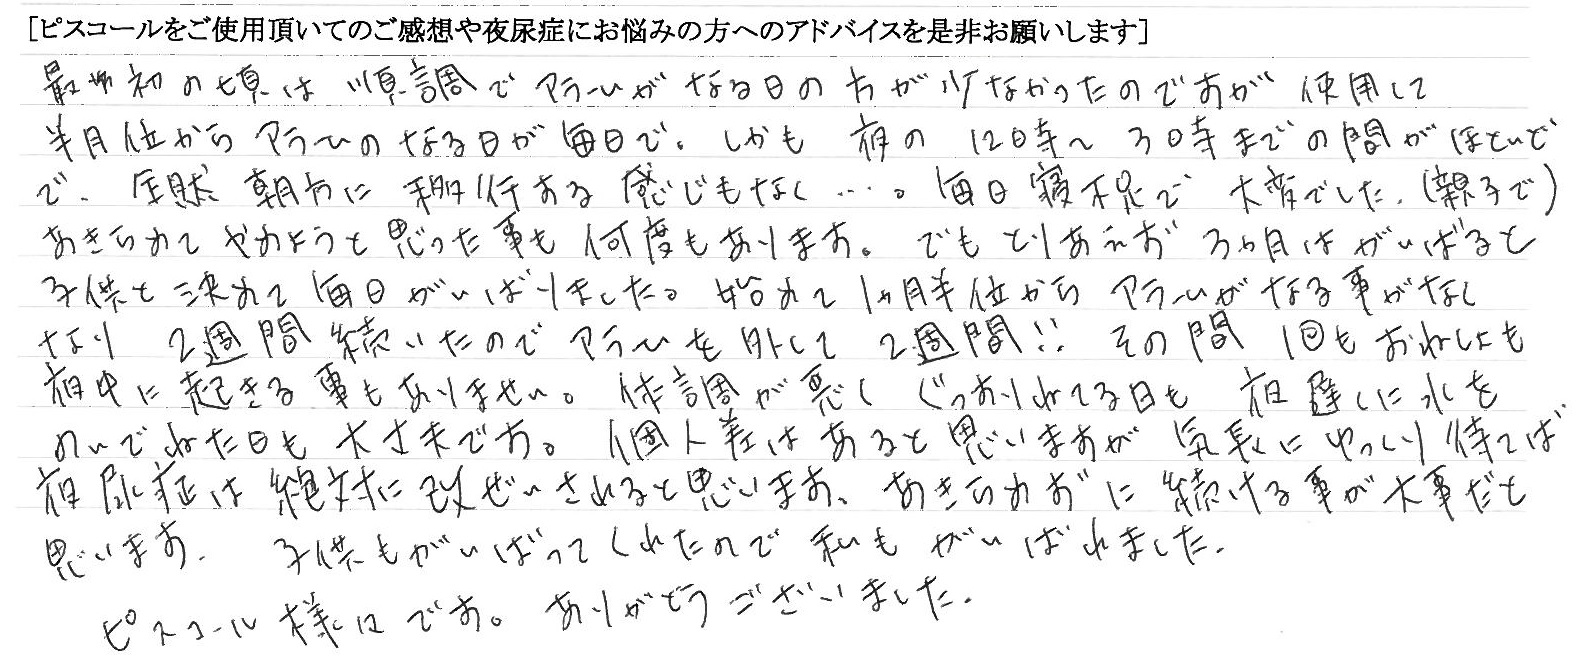 [ピスコールをご使用頂いてのご感想や夜尿症にお悩みの方へのアドバイスを是非お願いします]
最初の頃は順調でアラームがなる日の方が少なかったのですが使用して
半月位からアラームのなる日が毎日で。しかも夜の12時～3時までの間がほとんど
で、全然朝方に移行する感じもなく…。毎日寝不足で大変でした.(親子で)
あきらめてやめようと思った事も何度もあります。でもとりあえず3ヵ月はがんばると
子供と決めて毎日がんばりました。始めて1ヵ月半位からアラームがなる事がなく
なり 2週間続いたのでアラームを外して2週間!! その間1回もおねしょも
夜中に起きる事もありません。体調が悪くぐっすりねてる日も夜遅くに水を
のんでねた日も大丈夫です。個人差はあると思いますが気長にゆっくり待てば
夜尿症は絶対に改ぜんされると思います、あきらめずに続ける事が大事だと
思います. 子供もがんばってくれたので私もがんばれました.
ピスコール様々です。ありがとうございました.